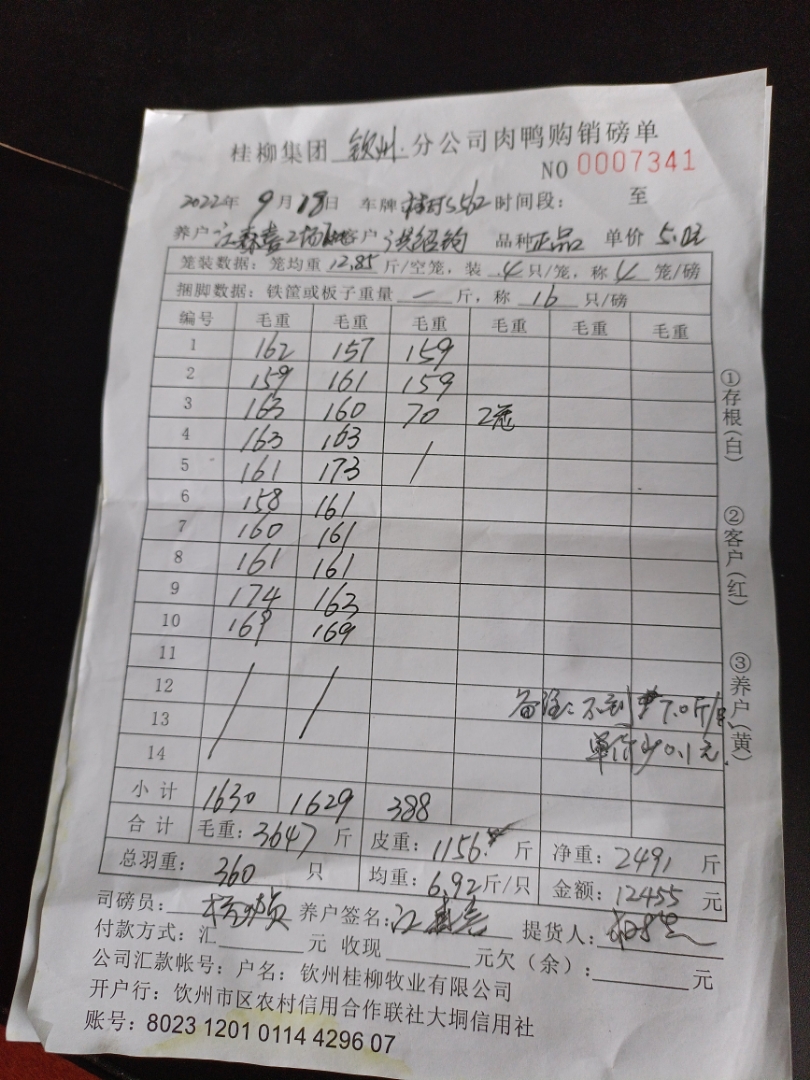 桂柳集团 钦州 分公司肉鸭购销磅单
NO 0007341
2022年 9月18日 车牌 S562 时间段： 至
养户 江 客户 洪绍钩 品种 正品 单价 5.0元
笼装数据：笼均重 12.85 斤/空笼，装 4 只/笼，称 4 笼/磅
捆脚数据：铁筐或板子重量 — 斤，称 16 只/磅
编号 毛重 毛重 毛重 毛重 毛重 毛重
1 162 157 159
2 159 161 159
3 163 160 70 2笼
4 163 163
5 161 173 /
6 158 161
7 160 161
8 161 161
9 174 163
10 169 169
11
12
13
14
备注：不到 7.0斤/只
单价少0.1元
小计 1630 1629 388
合计 毛重：3647 斤 皮重：1156. 斤 净重：2491 斤
总羽重： 360 只 均重：6.92斤/只 金额：12455 元
司磅员： 养户签名：江 提货人：
付款方式：汇 元 收现 元欠（余）： 元
公司汇款帐号：户名：钦州桂柳牧业有限公司
开户行：钦州市区农村信用合作联社大垌信用社
账号：8023 1201 0114 4296 07
①存根（白） ②客户（红） ③养户（黄）